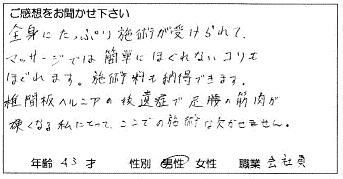 ご感想をお聞かせ下さい
全身にたっぷり施術が受けられて、
マッサージでは簡単にほぐれないコリも
ほぐれます。施術料も納得できます。
椎間板ヘルニアの後遺症で足腰の筋肉が
硬くなる私にとって、ここでの施術は欠かせません。
年齢 43 才 性別 男性 女性 職業 会社員